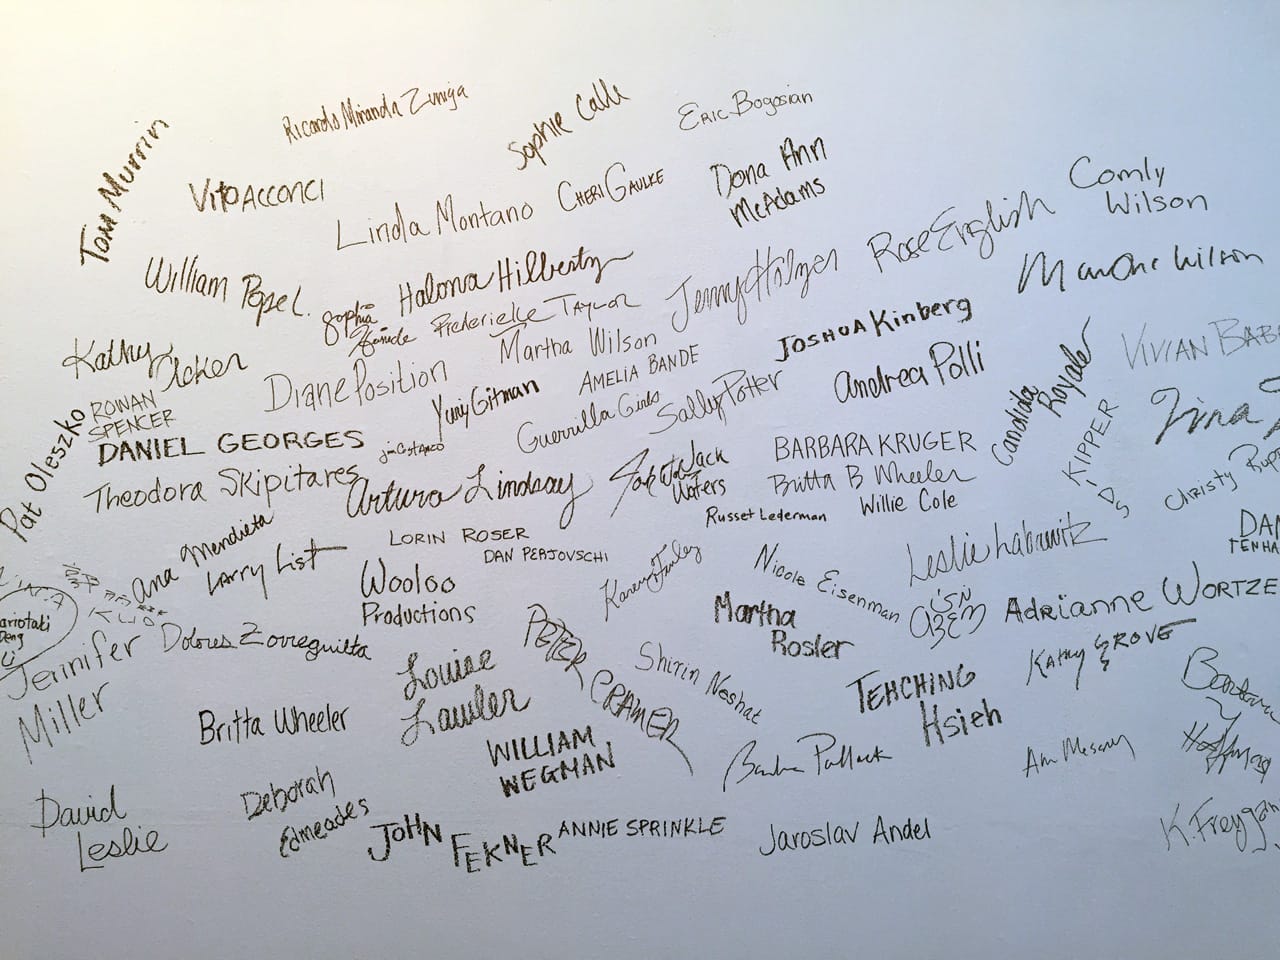 Tom Murrin
Ricardo Miranda Zuniga
Sophie Calle
Eric Bogosian
Vito Acconci
Linda Montano
Cheri Gaulke
Dona Ann
McAdams
Comly
Wilson
William Pope L.
Halona Hilbertz
Jenny Holzer
Rose English
Martha Wilson
Sophia
Frederieke Taylor
Kathy
Acker
Diane Position
Martha Wilson
Joshua Kinberg
Yuriy Gitman
AMELIA BANDE
Andrea Polli
Candida
Royale
VIVIAN BAB
ROWAN
SPENCER
Guerrilla Girls
Sally Potter
KIPPER
Tina
Pat Oleszko
DANIEL GEORGES
Jim Costanzo
BARBARA KRUGER
Theodora Skipitares
Arturo Lindsay
Jack
Waters
Britta B Wheeler
Willie Cole
Christy Rupp
Russet Lederman
Ana Mendieta
Larry List
LORIN ROSER
DAN PERJOVSCHI
Karen Finley
Nicole Eisenman
Leslie Labowitz
DAN
TENHA
Wooloo
Productions
Martha
Rosler
ADRIANNE WORTZE
ariotaki
Deng
Ci
Jennifer
Miller
Dolores Zorreguieta
PETER
CRAMER
Shirin Neshat
Kathy Grove
Louise
Lawler
TEHCHING
Hsieh
Barbara
Hoffman
Britta Wheeler
WILLIAM
WEGMAN
Barbara Pollack
Ann Messner
David
Leslie
Deborah
Edmeades
JOHN
FEKNER
ANNIE SPRINKLE
Jaroslav Andel
K. Freygan